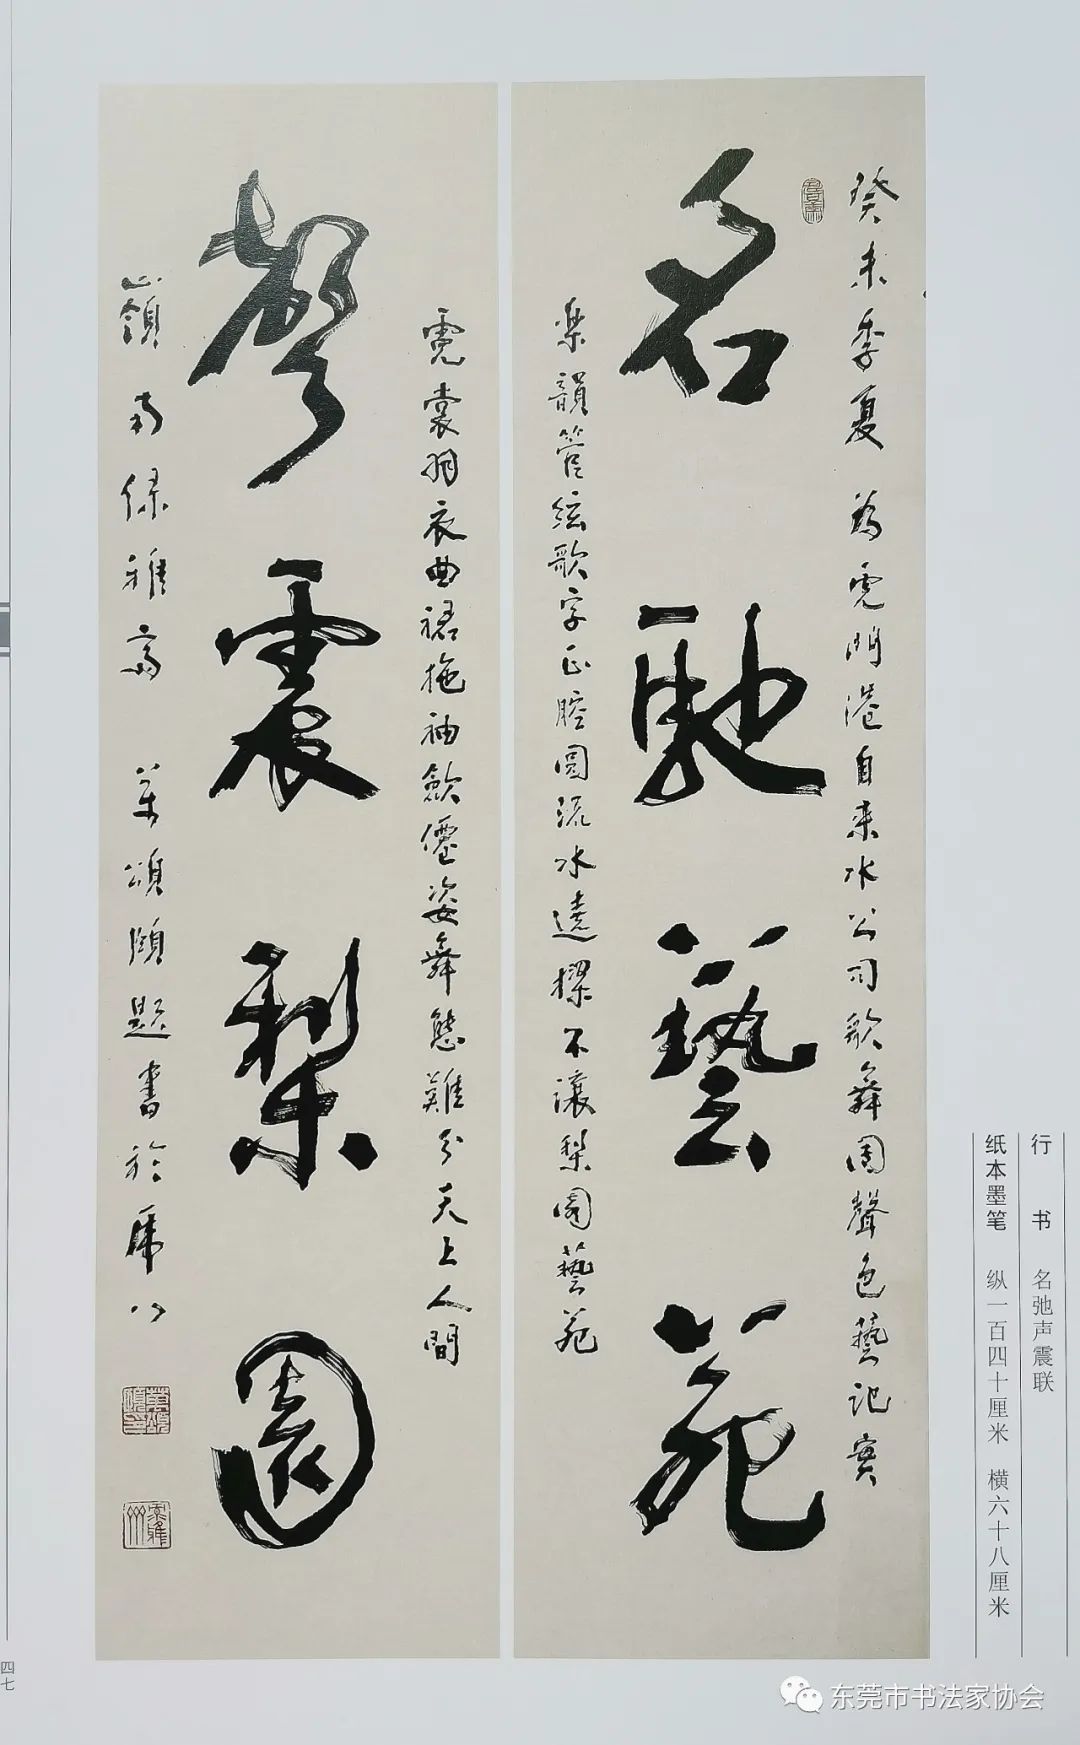 癸未季夏 為虎門港自来水公司歌舞團聲色藝記實
名馳藝苑
樂韻管絃歌字正腔圓流水遶樑不讓梨園藝苑
霓裳羽衣曲裙拖袖斂僊姿舞態難分天上人間
聲震梨園
嶺南绿雅齋 萬頌頤題書於虎門
行 书 名弛声震联
纸本墨笔 纵一百四十厘米 横六十八厘米
四七
东莞市书法家协会